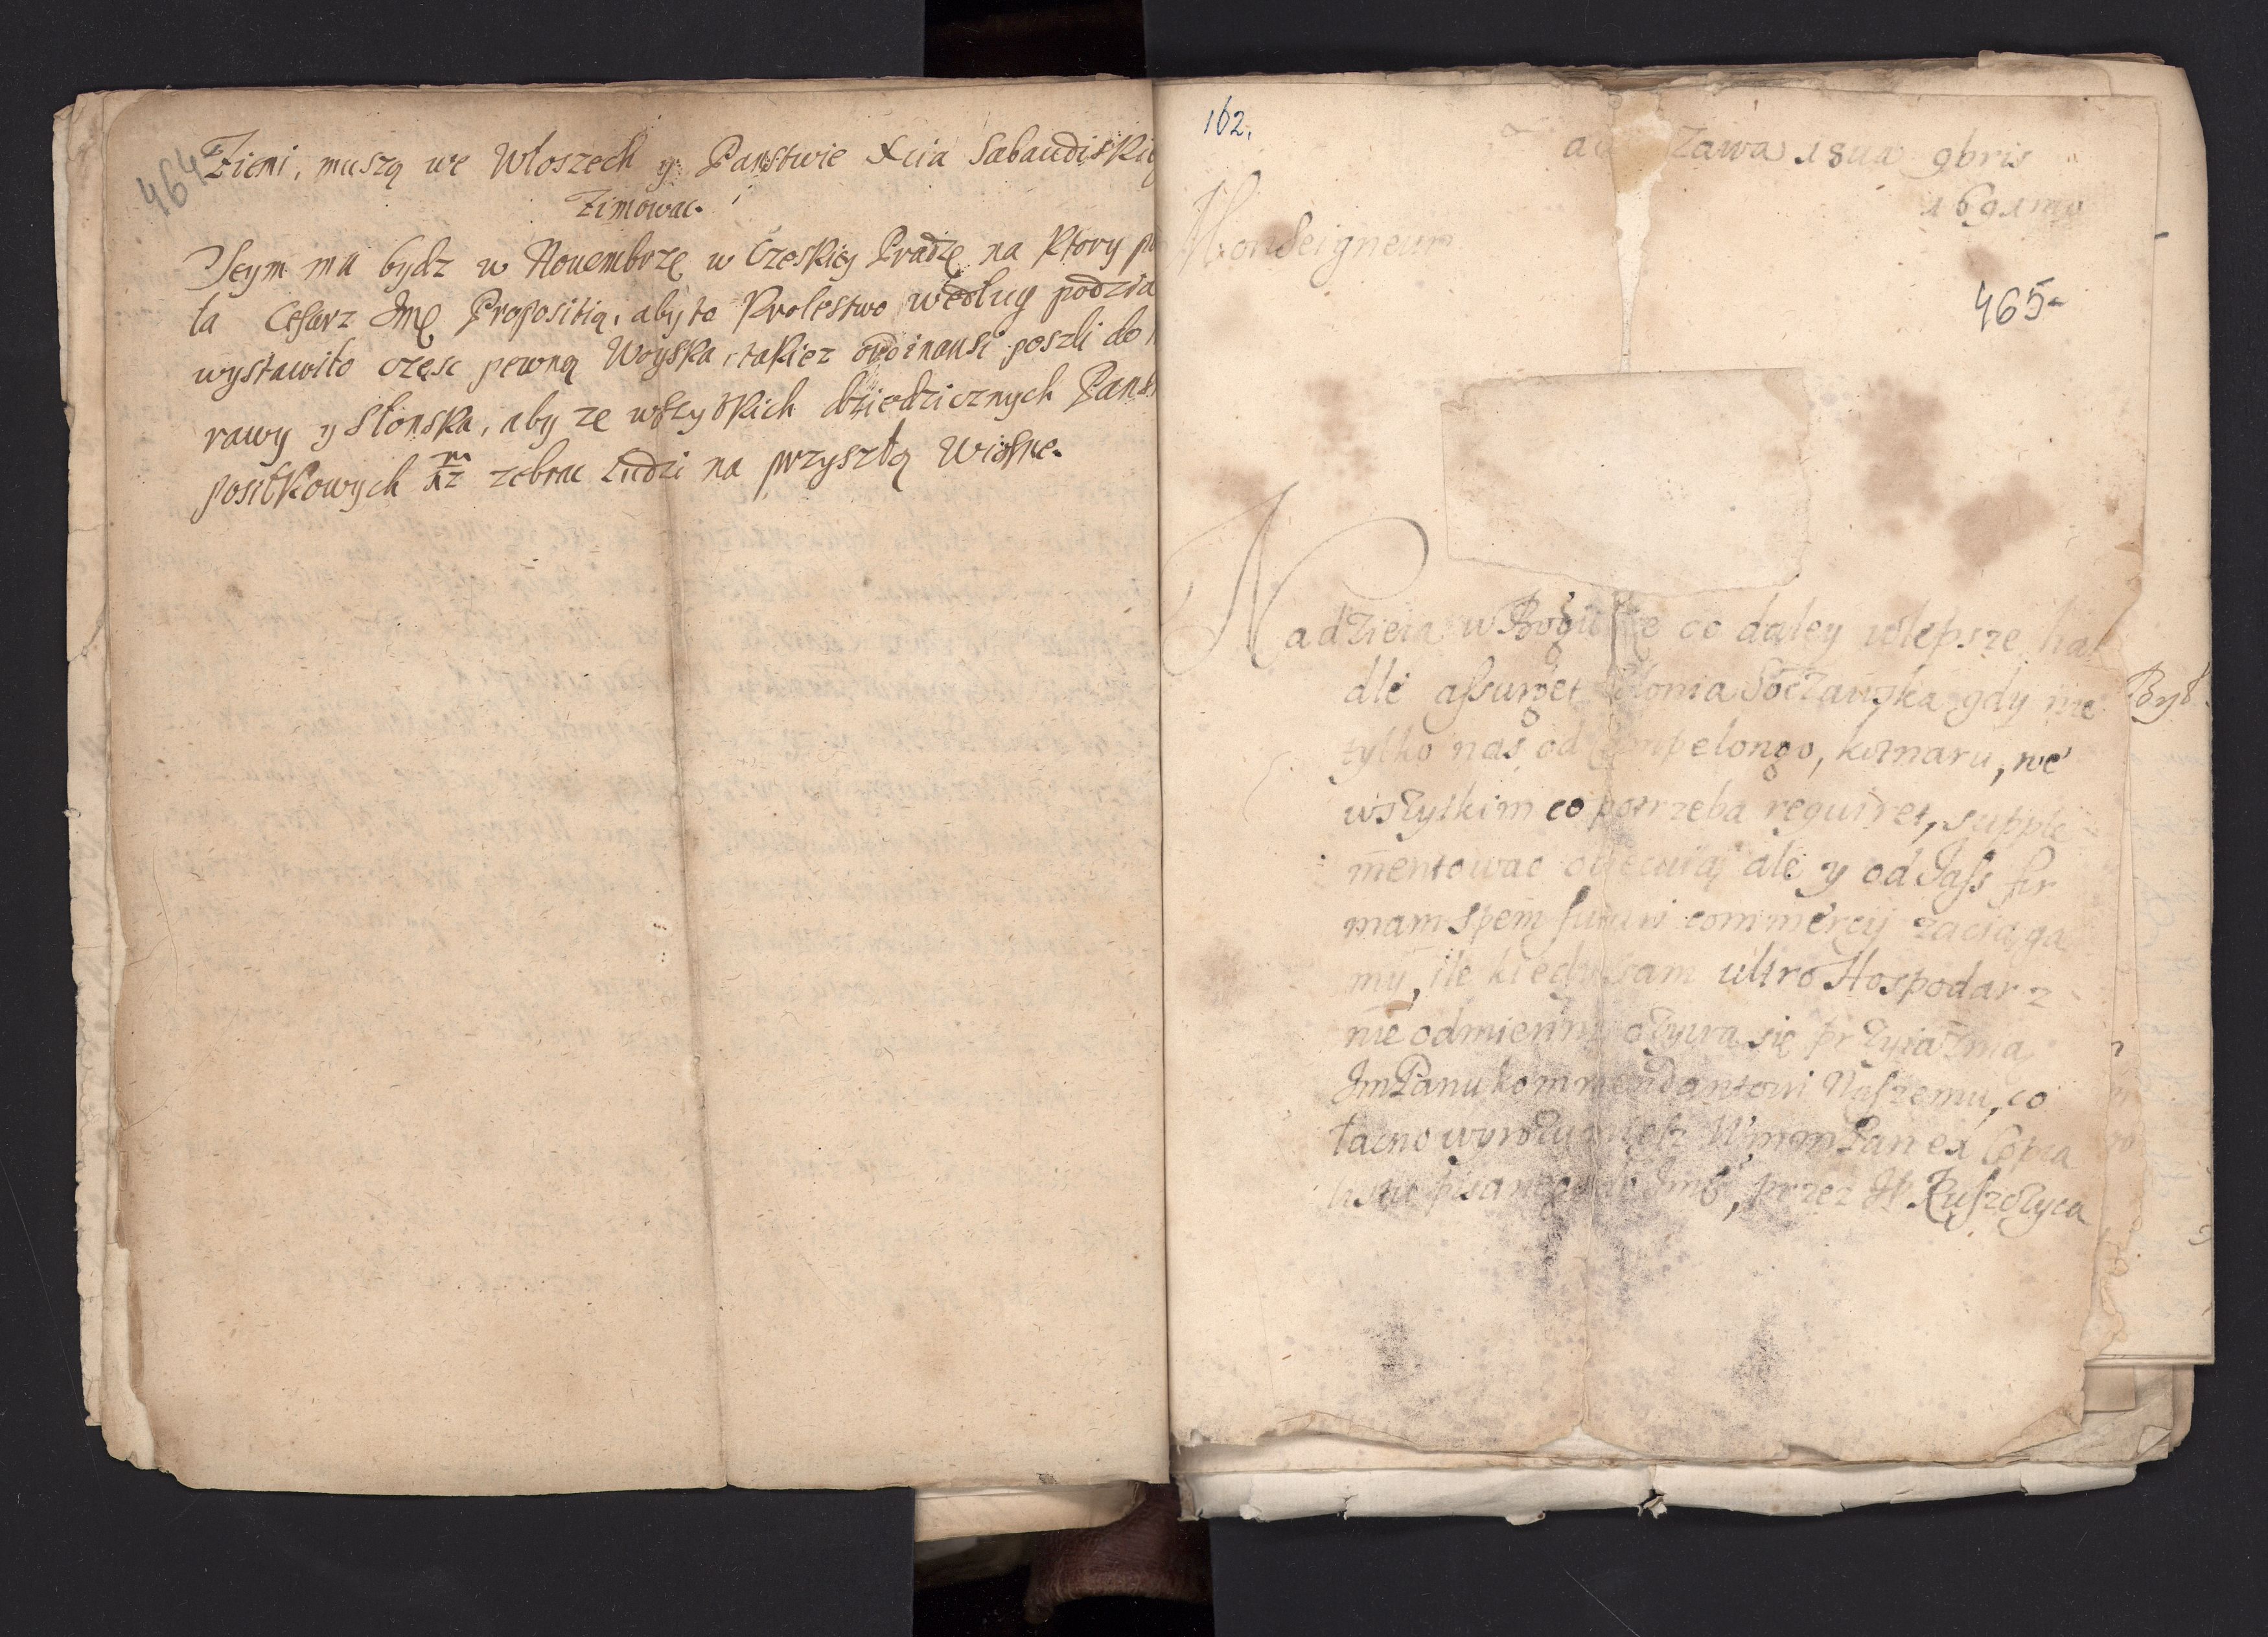 464
Zieni, muszą we Włoszech y Panstwie Xcia Sabaudiski
Zimowac.
Seym ma bydz w Nouembrze w Czeskiey Pradze na Ktory
ta Cesarz Jme Propositią, aby to Krolestwo według podzia
wystawiło częsc pewną Woyska, takiez ordinansi poszli do
rawy y Słonska, aby ze wszytkich dziedzicznych Pans
posiłkowych zebrac Ludzi na przyszłą Wiosne.
162.
zawa 18ua 9bris
1691mo
Monseigneur
465
Nadzieia w Bogu ze co daley w lepsze
dle assurget Soczawska gdy nie
tylko nas od Kimpelongo, kornaru, we
wszytkim co potrzeba requiret, supple
mentowac obiecuią ale y od Jass fir
mam spem futuri commercij zaciąga
my, ile kiedy sam ultro Hospodar z
nie odmienną ozywa się przyiaznią
Jm Panu kommendantowi Naszemu, co
łacno wyrozumiesz WmmPan ex Copia
listu pisanego do Jmci, przez Jp. Ruszczyca
Był